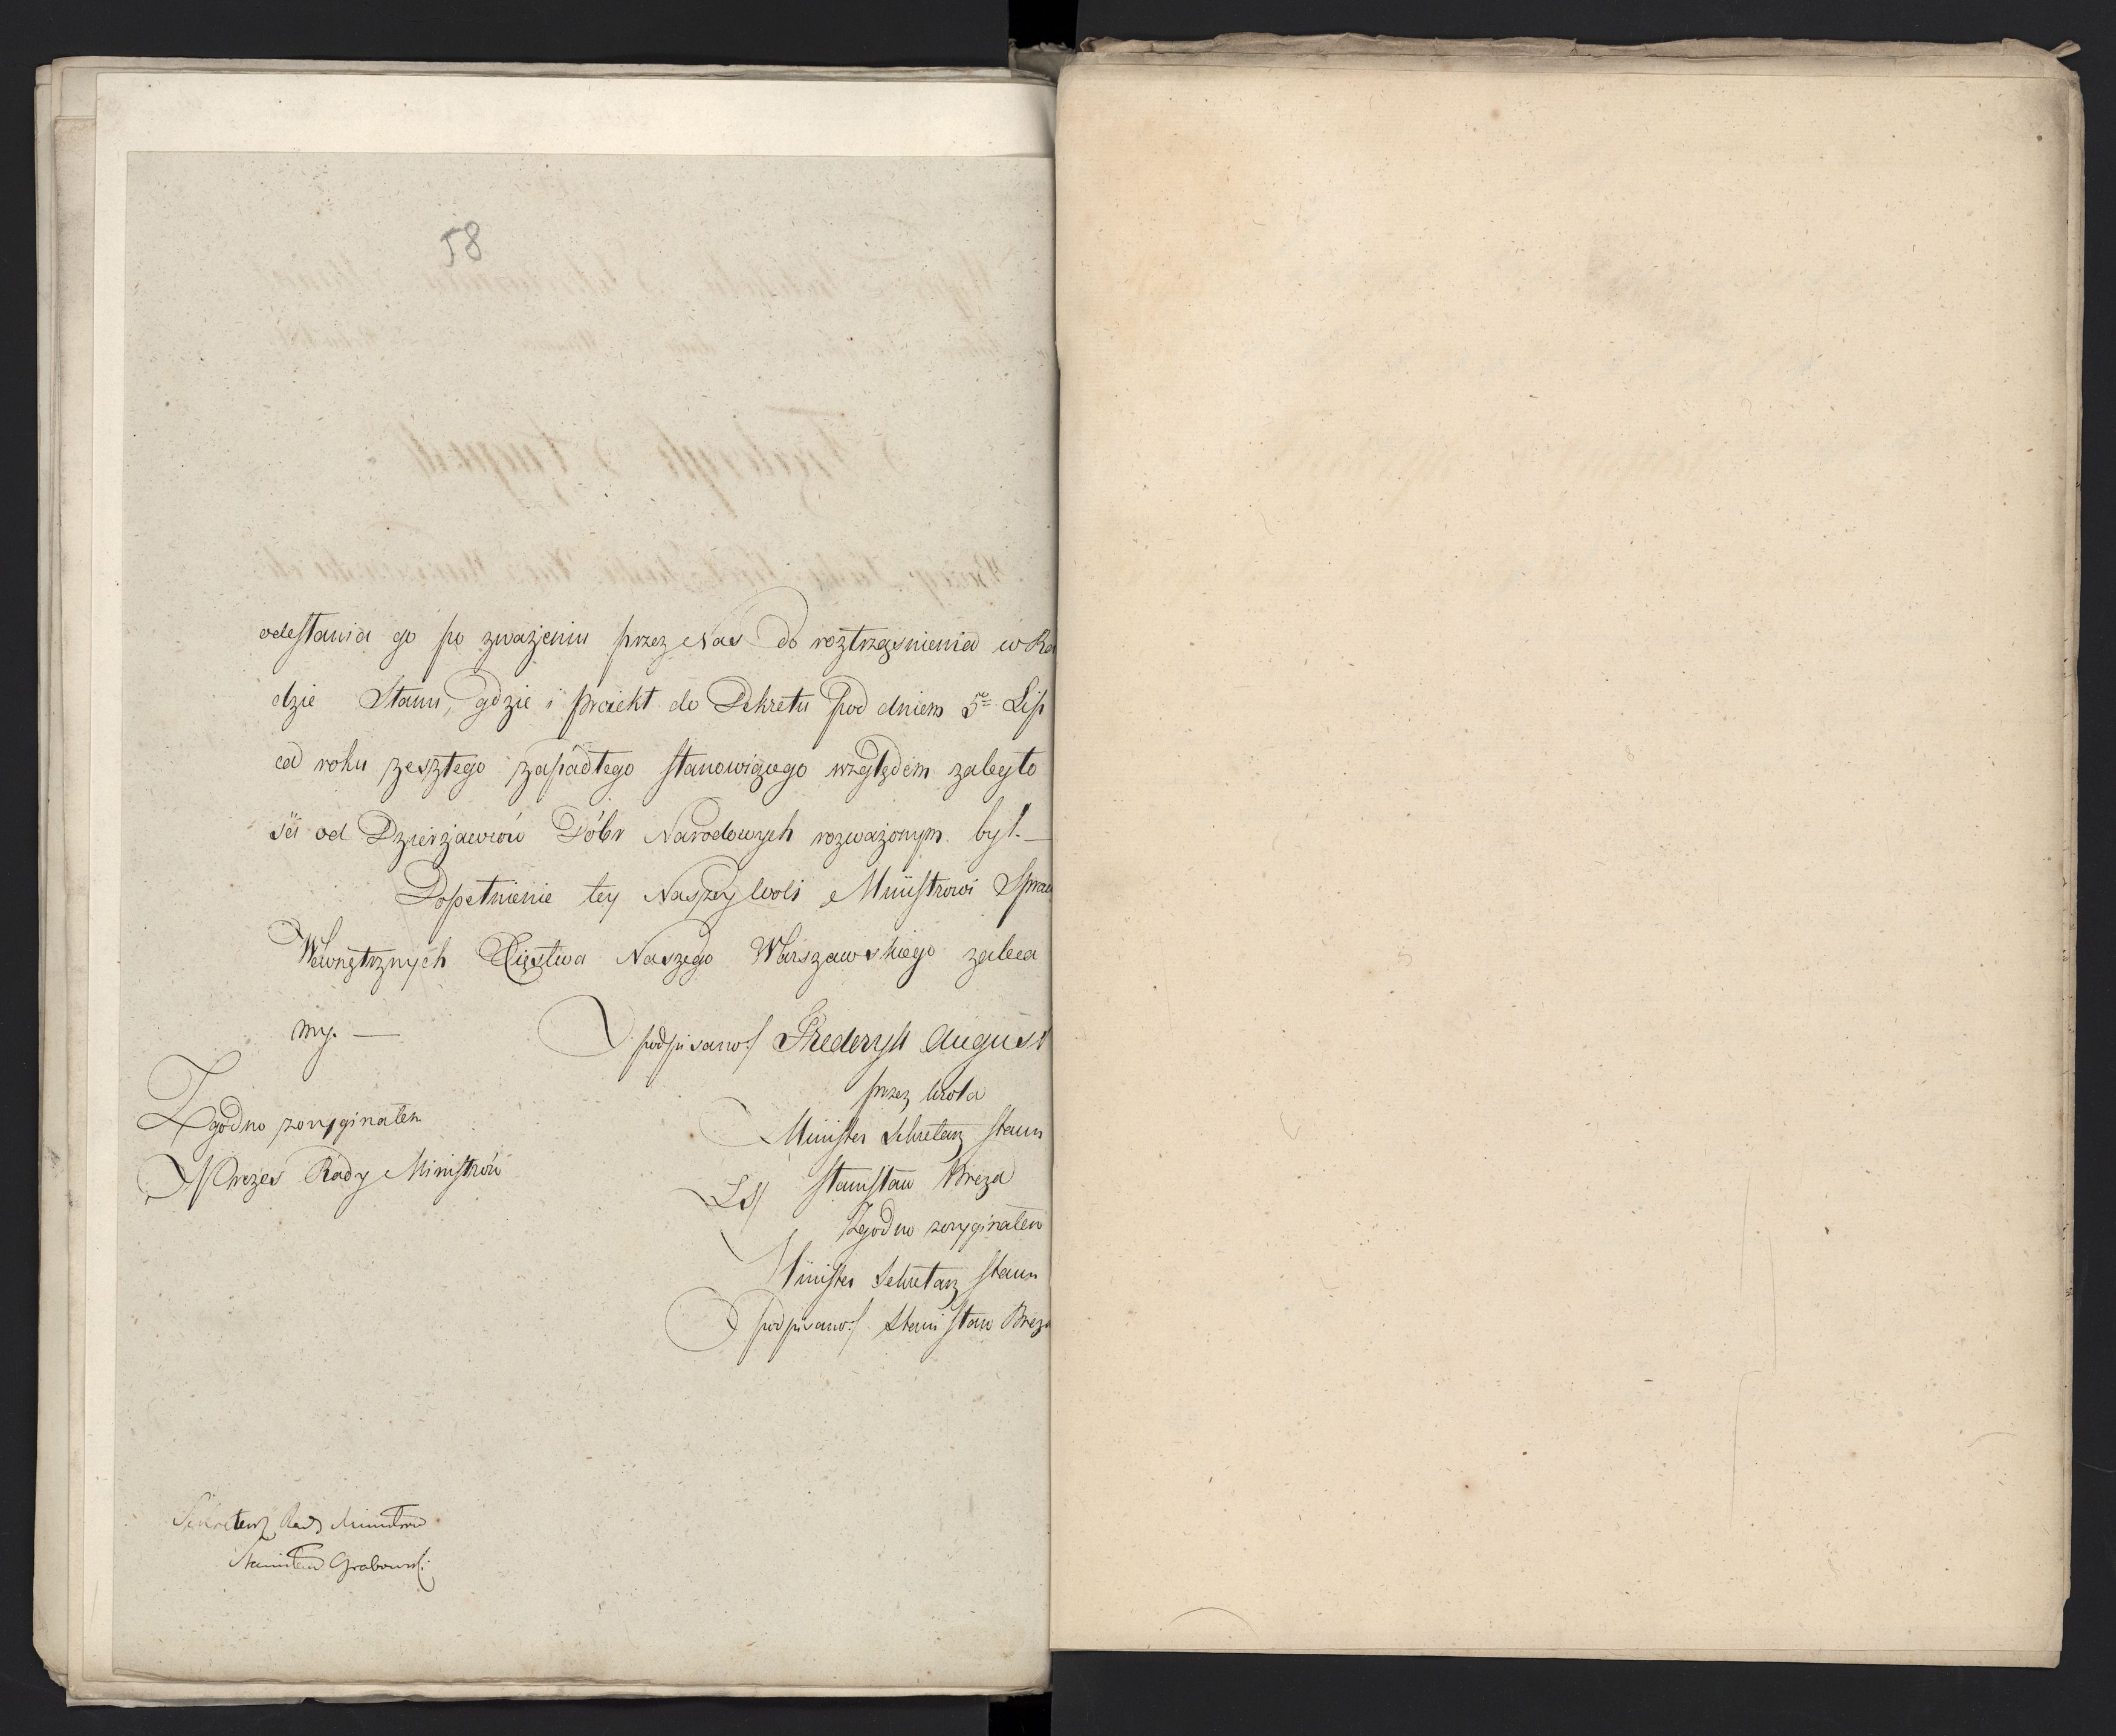 58
odesłania go po zważeniu przez Nas do roztrząsnienia w Ra
dzie Stanu, gdzie i proiekt do Dekretu pod dniem 5º Lip
ca roku zeszłego zapadłego stanowiącego względem zaległo
ści od Dzierżawców Dóbr Narodowych rozważonym był. —
Dopełnienie tey Naszey woli Ministrowi Spraw
Wewnętrznych Xięstwa Naszego Warszawskiego zaleca
my. —
podpisano:/ Frederyk August
przez Króla
Minister Sekretarz Stanu
LS/ Stanisław Breza
Zgodno z oryginałem
Minister Sekretarz Stanu
podpisano:/ Stanisław Breza
Zgodno z oryginałem
Prezes Rady Ministrów
Sekretarz Rady Ministrów
Stanisław Grabowski